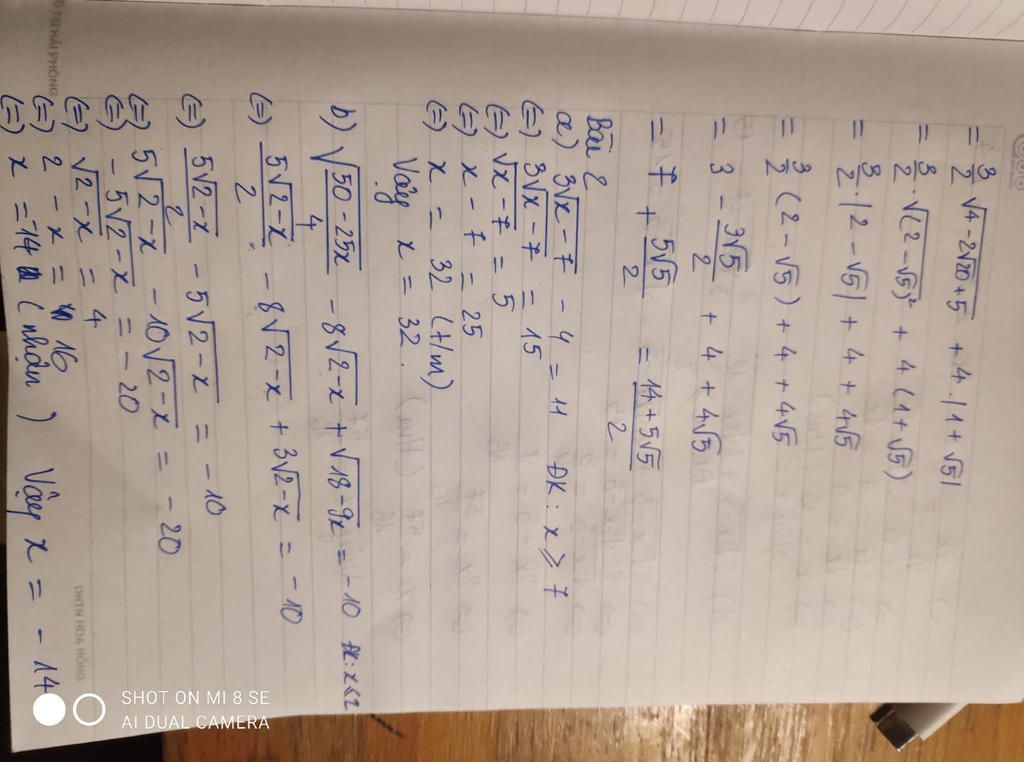 = 3/2 √(4 - 2√20 + 5) + 4 . |1 + √5|
= 3/2 . √((2 - √5)²) + 4 (1 + √5)
= 3/2 . |2 - √5| + 4 + 4√5
= 3/2 (2 - √5) + 4 + 4√5
= 3 - 3√5/2 + 4 + 4√5
= 7 + 5√5/2 = 14 + 5√5/2
Bài 2
a) 3√(x - 7) - 4 = 11 ĐK: x ⩾ 7
(=) 3√(x - 7) = 15
(=) √(x - 7) = 5
(=) x - 7 = 25
(=) x = 32 (t/m)
Vậy x = 32.
b) √((50 - 25x)/4) - 8√(2 - x) + √(18 - 9x) = -10 ĐK: x ≤ 2
(=) 5√(2 - x)/2 - 8√(2 - x) + 3√(2 - x) = -10
(=) 5√(2 - x)/2 - 5√(2 - x) = -10
(=) 5√(2 - x) - 10√(2 - x) = -20
(=) -5√(2 - x) = -20
(=) √(2 - x) = 4
(=) 2 - x = 16
(=) x = -14 (nhận) Vậy x = -14
SHOT ON MI 8 SE
AI DUAL CAMERA
DNTN HOA HỒNG